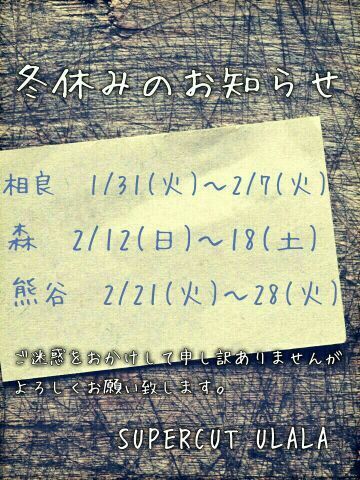 冬休みのお知らせ
相良 1/31(火)～2/7(火)
森 2/12(日)～18(土)
熊谷 2/21(火)～28(火)
ご迷惑をおかけして申し訳ありませんが
よろしくお願い致します。
SUPERCUT ULALA